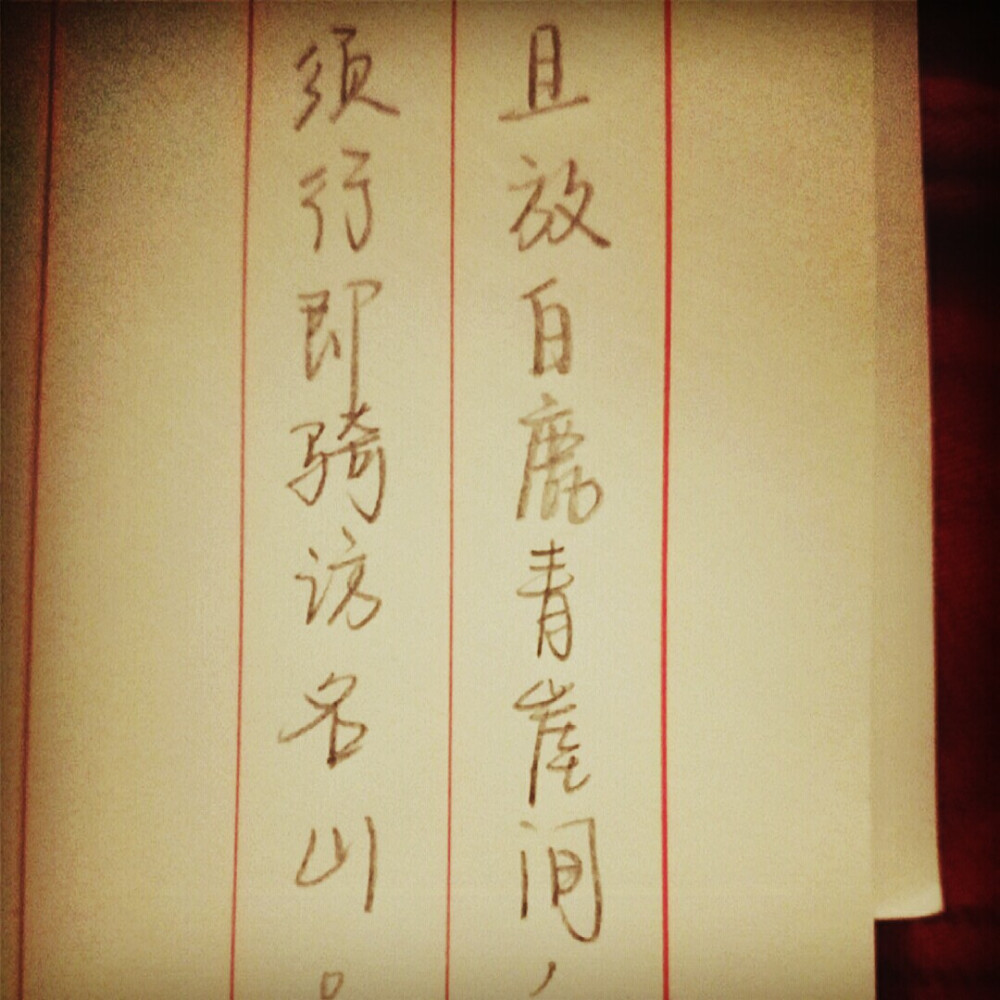 且放白鹿青崖间，
须行即骑访名山。